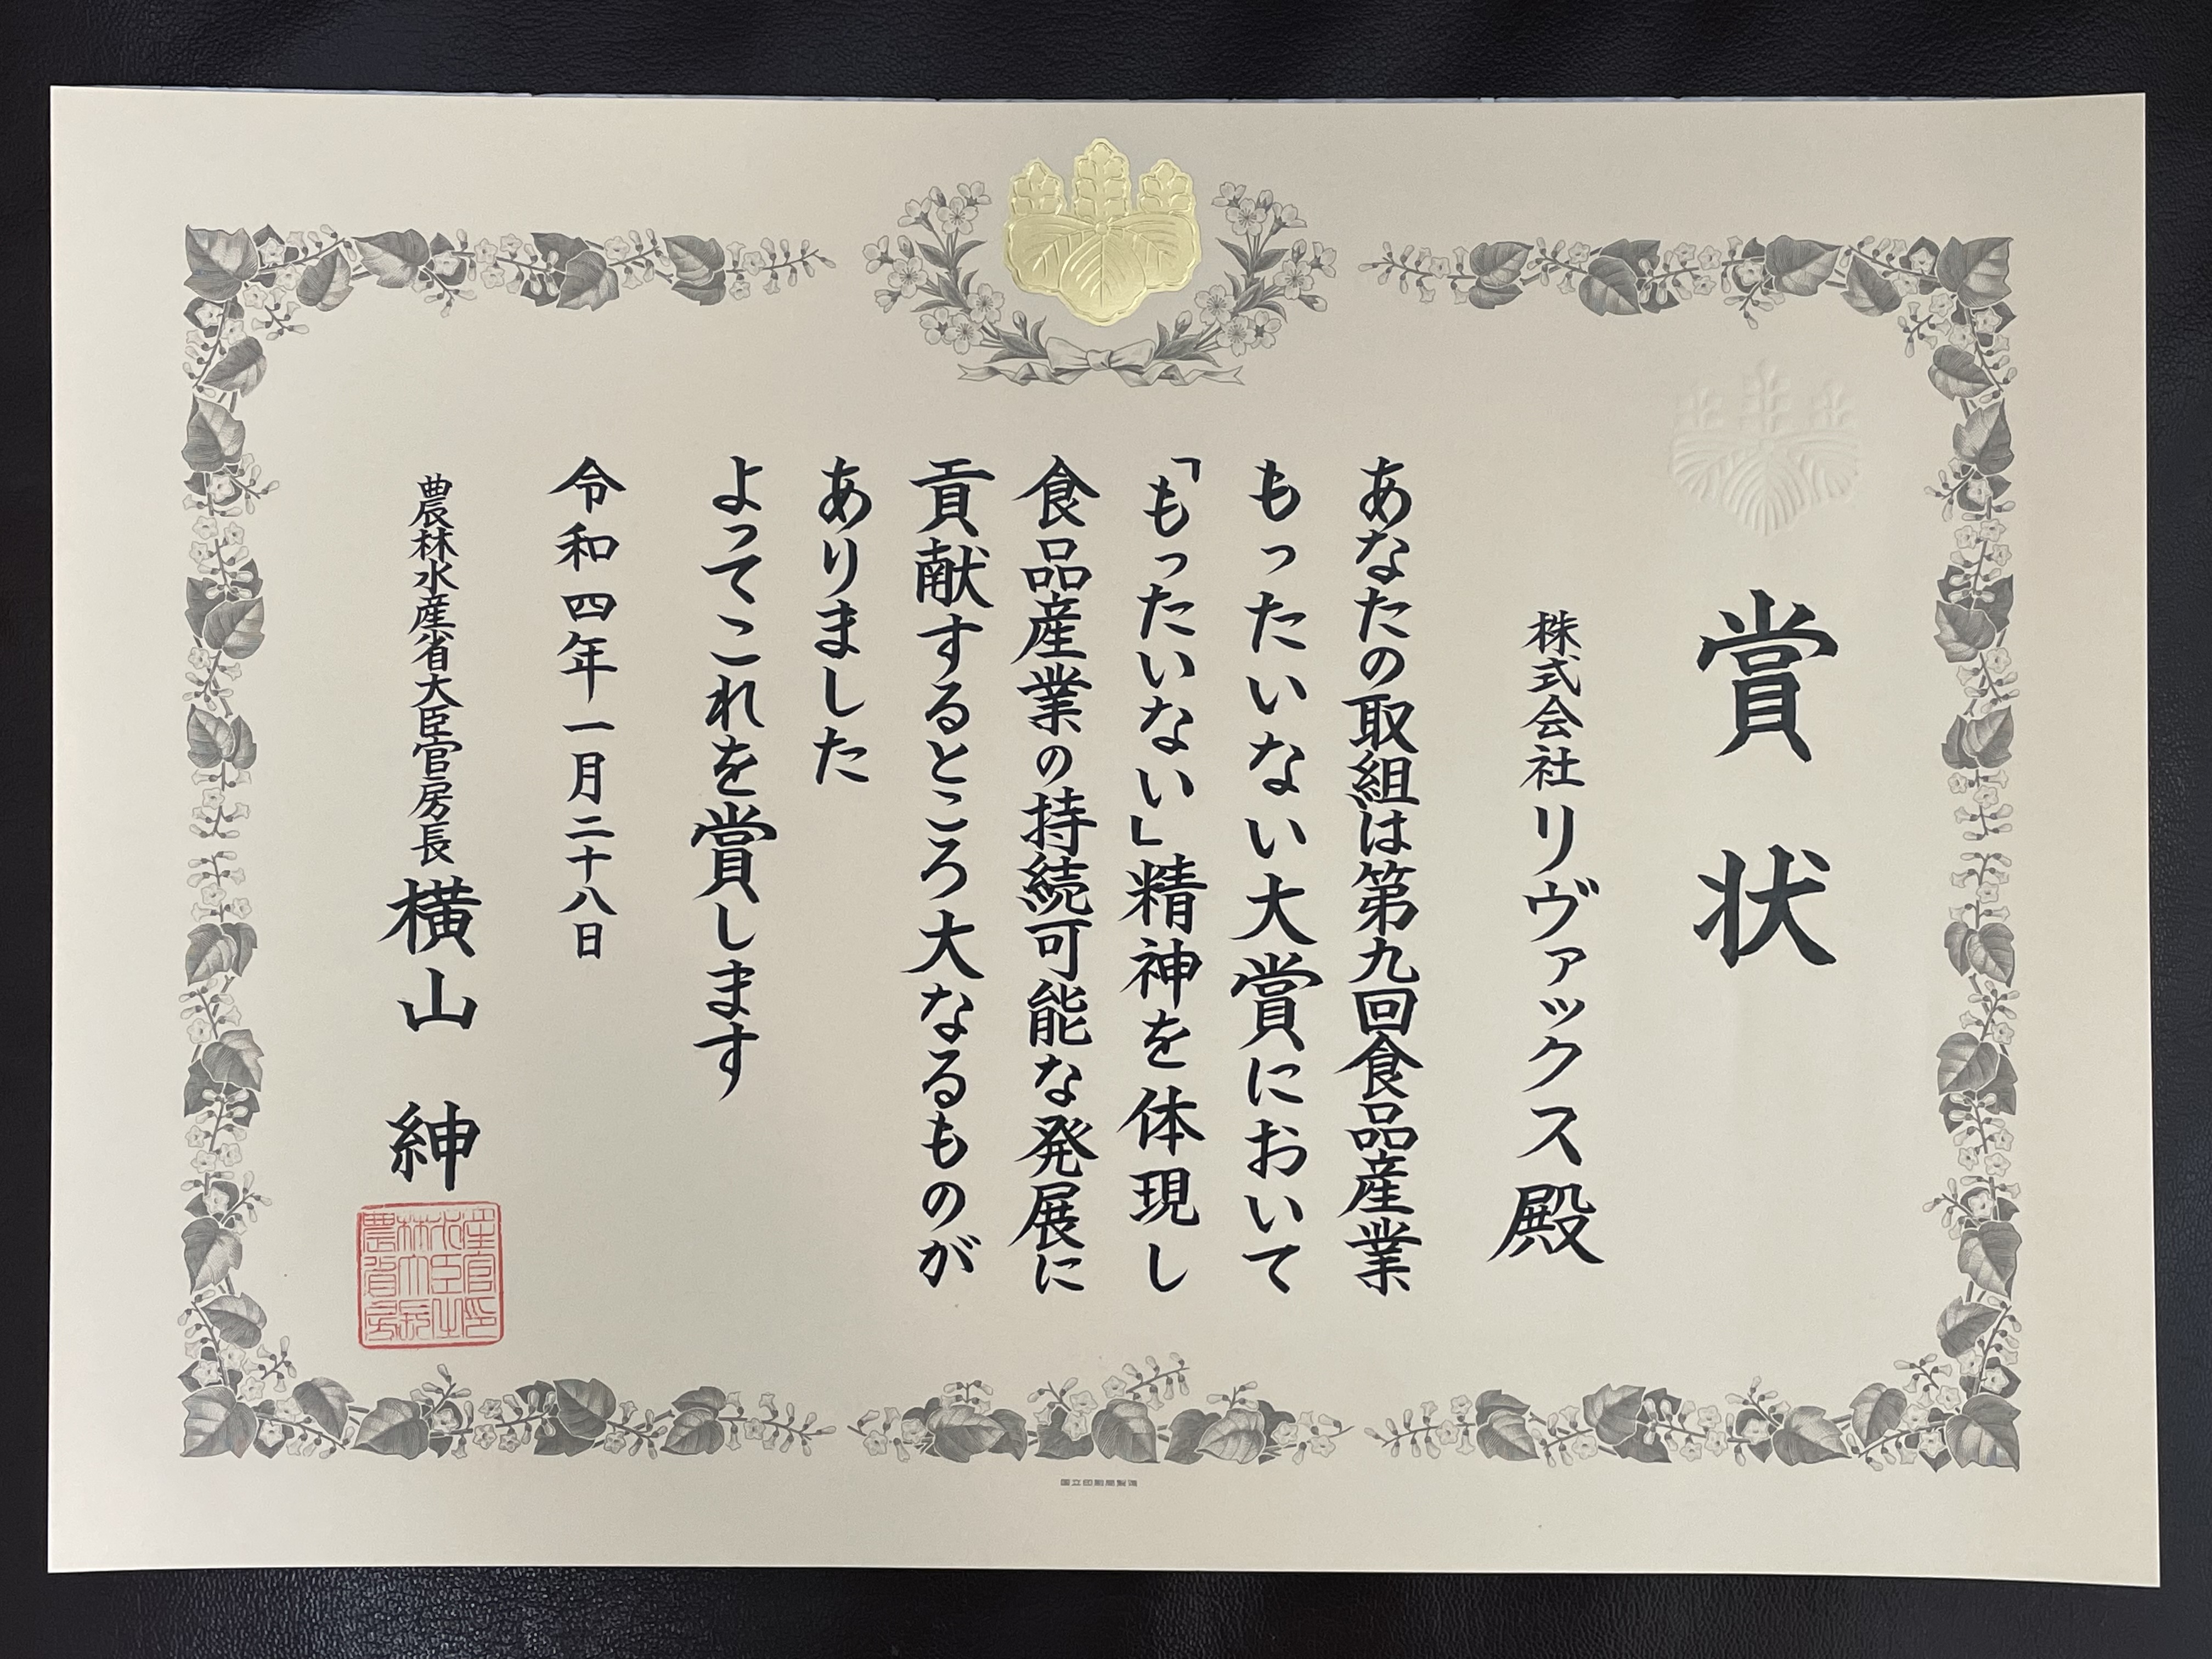 賞状
株式会社リヴァックス殿
あなたの取組は第九回食品産業
もったいない大賞において
「もったいない」精神を体現し
食品産業の持続可能な発展に
貢献するところ大なるものが
ありました
よってこれを賞します
令和四年一月二十八日
農林水産省大臣官房長横山 紳
国立印刷局製造